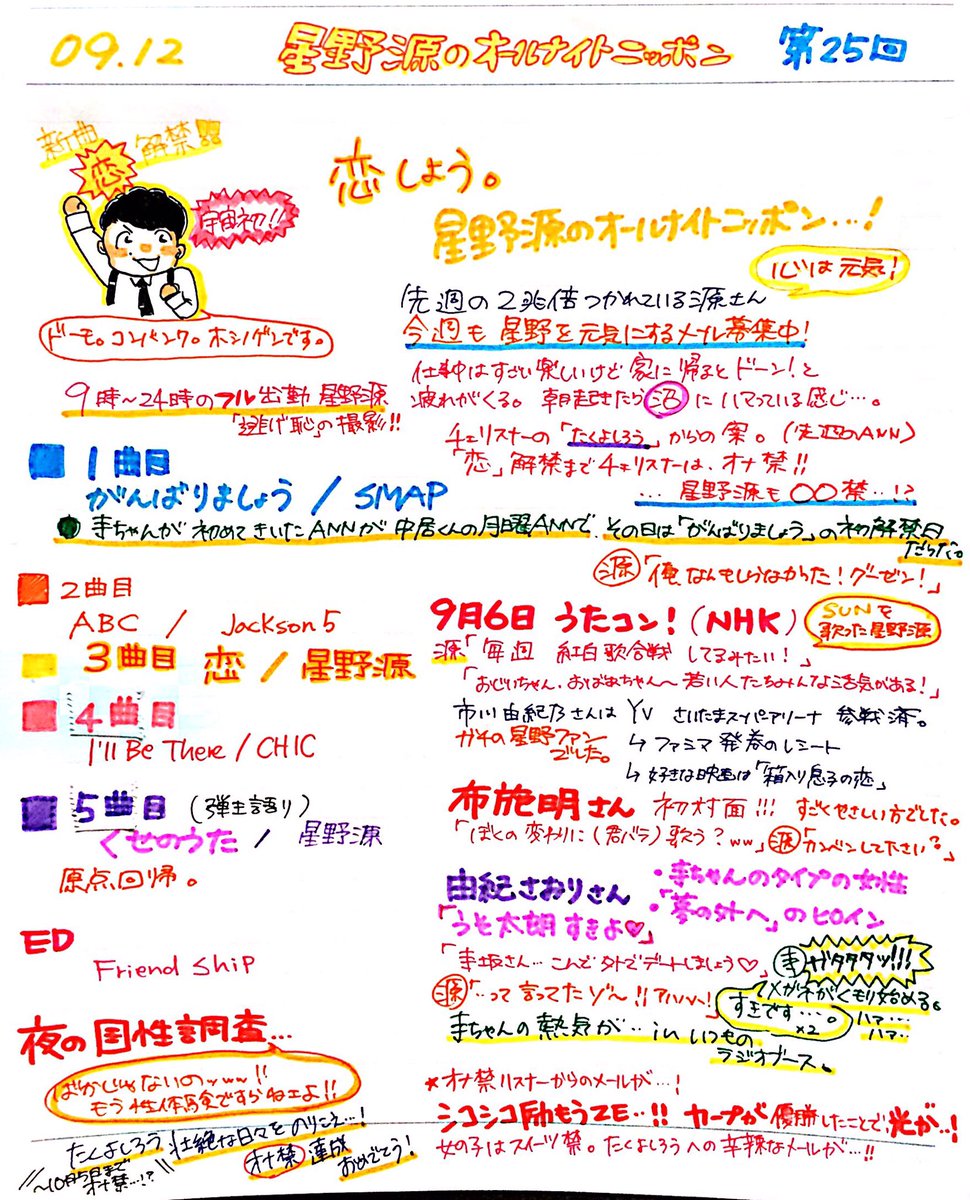 09.12 星野源のオールナイトニッポン 第25回
新曲 解禁!!
恋
宇宙初!!
ドーモ。コンバンワ。ホシノゲンです。
恋しよう。
星野源のオールナイトニッポン…!
心は元気!
先週の2兆倍つかれている源さん
今週も星野を元気にするメール募集中!
仕事中はすごい楽しいけど家に帰るとドーン!と
疲れがくる。朝起きたら沼にハマっている感じ…。
9時〜24時のフル出勤 星野源
「逃げ恥」の撮影!!
チェリスナーの「たくよしろう」からの案。(先週のANN)
「恋」解禁までチェリスナーは、オナ禁!!
… 星野源も〇〇禁…!?
1曲目
がんばりましょう / SMAP
寺ちゃんが初めてきいたANNが中居くんの月曜ANNで、その日は「がんばりましょう」の初解禁日
だった。
源「俺なんもしらなかった!グーゼン!」
2曲目
ABC / Jackson5
3曲目 恋 / 星野源
4曲目
I'll Be There / CHIC
5曲目 (弾き語り)
くせのうた / 星野源
原点回帰。
ED
Friend Ship
夜の国性調査…
ばかじゃないのッww!!
もう性体験ですらねェよ!!
たくよしろう、壮絶な日々をのりこえ…!
オナ禁 達成
おめでとう!
〜10月5日まで
オナ禁…!?
9月6日 うたコン!(NHK)
SUNを
歌った星野源
源「毎週 紅白歌合戦 してるみたい!」
「おじいちゃん、おばあちゃん〜若い人たちみんな活気がある!」
市川由紀乃さんは YV さいたまスーパーアリーナ 参戦済。
ガチの星野ファン
でした。
↳ ファミマ発券のレシート
↳ 好きな映画は「箱入り息子の恋」
布施明さん 初対面!!! すごくやさしい方でした。
「ぼくの変わりに(君バラ)歌う?ww」 源「カンベンして下さい?」
由紀さおりさん
・寺ちゃんのタイプの女性
・「夢の外へ」のヒロイン
「うそ太朗 すきよ♡」
「寺坂さん…こんど外でデートしましょう♡」
寺 ガタタタッ!!!
源「…って言ってたゾ〜!!アハハハ!」
すきです…。
×2
メガネがくもり始める。
ハァ…
ハァ…
寺ちゃんの熱気が… in いつもの
ラジオブース。
★オナ禁リスナーからのメールが…!
シコシコ励もうZE…!! カープが優勝したことで、光が…!
女の子はスイーツ禁。たくよしろうへの辛辣なメールが…!!